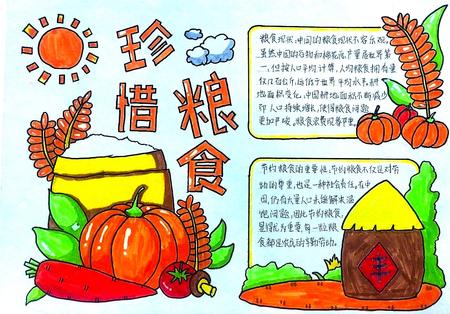 珍惜
粮食
粮食现状:中国的粮食现状不容乐观,
虽然中国的谷物和棉花总产量居世界第
一,但按人口平均计算,人均粮食拥有量
仅几百公斤,远低于世界平均水平。耕
地面积变化,中国耕地面积不断减少
人口持续增长,使得粮食问题
更加严峻,粮食浪费现象严重。
节约粮食的重要性:节约粮食不仅是对劳
动的尊重,也是一种社会责任。在中
国,仍有大量人口未能解决温
饱问题,因此节约粮食,
显得尤为重要,每一粒粮
食都是农民的辛勤劳动。